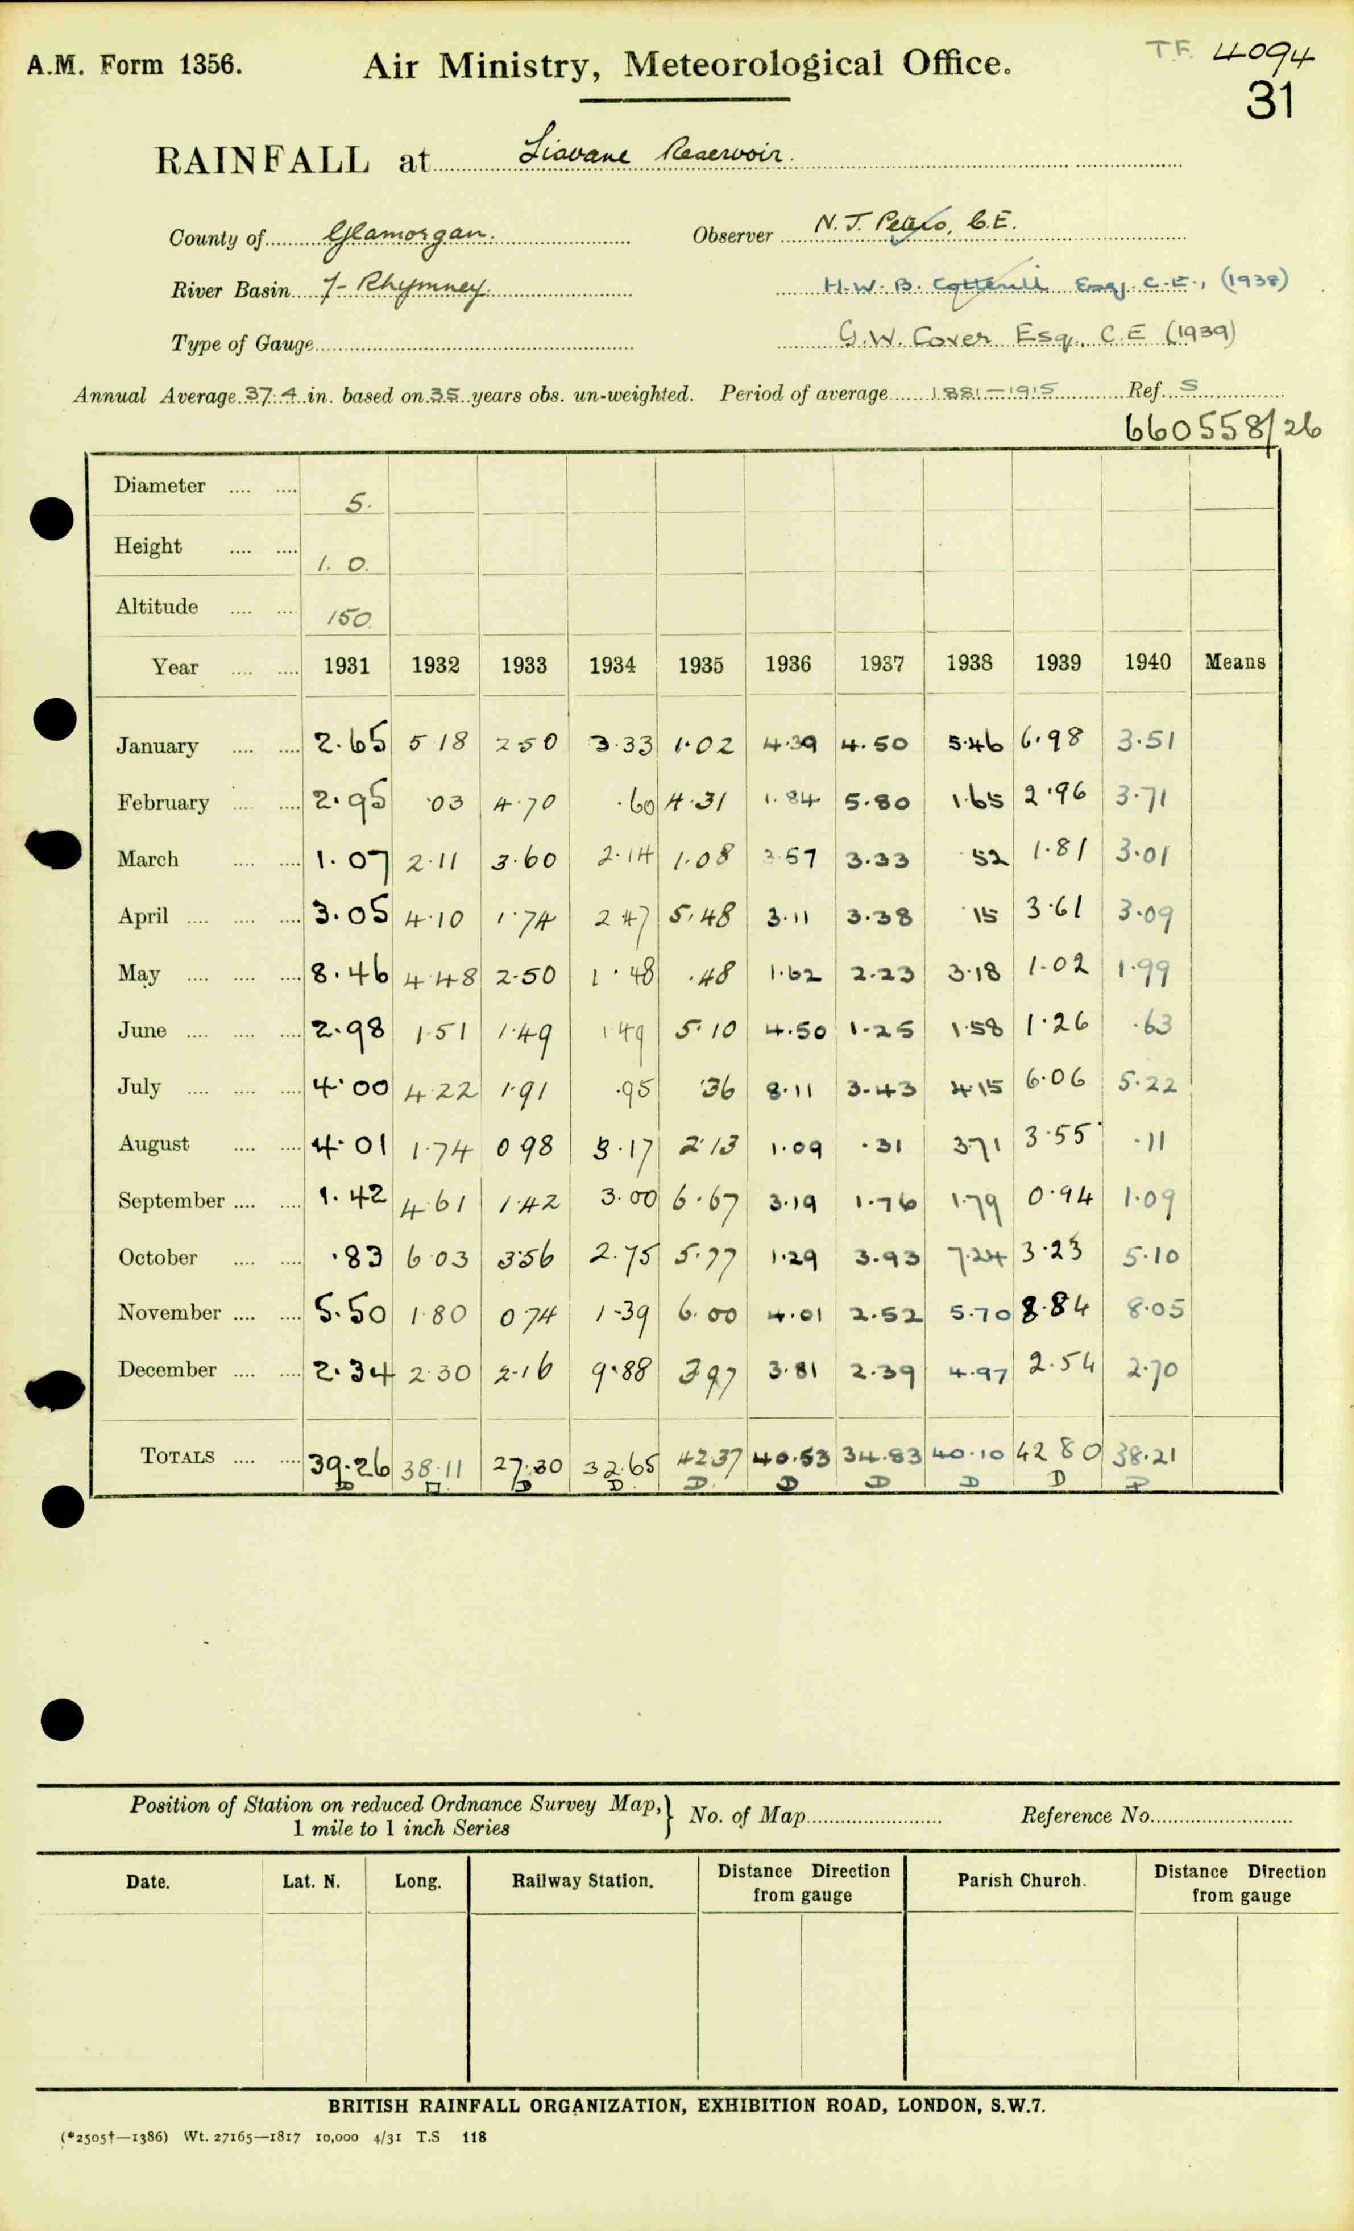 A.M. Form 1356.
Air Ministry, Meteorological Office.
T.F. 4094
31
RAINFALL at Lisvane Reservoir.
County of Glamorgan.
Observer N. J. Peters, C.E.
River Basin 7- Rhymney.
H.W.B. Cotterill Esq. C.E., (1938)
Type of Gauge
G.W. Cover Esq., C.E (1939)
Annual Average 37.4 in. based on 35 years obs. un-weighted. Period of average 1881-1915 Ref. S
660558/26
Diameter 5.
Height 1. 0.
Altitude 150.
Year 1931 1932 1933 1934 1935 1936 1937 1938 1939 1940 Means
January 2.65 5 18 2 50 3.33 1.02 4.39 4.50 5.46 6.98 3.51
February 2.95 .03 4.70 .60 4.31 1.84 5.80 1.65 2.96 3.71
March 1.07 2.11 3.60 2.14 1.08 3.57 3.33 .52 1.81 3.01
April 3.05 4.10 1.74 2 47 5.48 3.11 3.38 .15 3.61 3.09
May 8.46 4.48 2.50 1.48 .48 1.62 2.23 3.18 1.02 1.99
June 2.98 1.51 1.49 1 49 5.10 4.50 1.25 1.58 1.26 .63
July 4.00 4.22 1.91 .95 .36 8.11 3.43 4.15 6.06 5.22
August 4.01 1.74 0 98 3.17 2.13 1.09 .31 3.71 3.55 .11
September 1.42 4.61 1.42 3.00 6.67 3.19 1.76 1.79 0.94 1.09
October .83 6 03 3.56 2.75 5.77 1.29 3.93 7.24 3.23 5.10
November 5.50 1.80 0 74 1.39 6.00 4.01 2.52 5.70 8.84 8.05
December 2.34 2.30 2.16 9.88 3 97 3.81 2.39 4.97 2.54 2.70
TOTALS 39.26 38.11 27.30 32.65 42.37 40.53 34.83 40.10 42 80 38.21
D D D D D D D D D
Position of Station on reduced Ordnance Survey Map, } No. of Map Reference No.
1 mile to 1 inch Series
Date. Lat. N. Long. Railway Station. Distance Direction from gauge Parish Church. Distance Direction from gauge
BRITISH RAINFALL ORGANIZATION, EXHIBITION ROAD, LONDON, S.W.7.
(*2505†—1386) Wt. 27165—1817 10,000 4/31 T.S 118